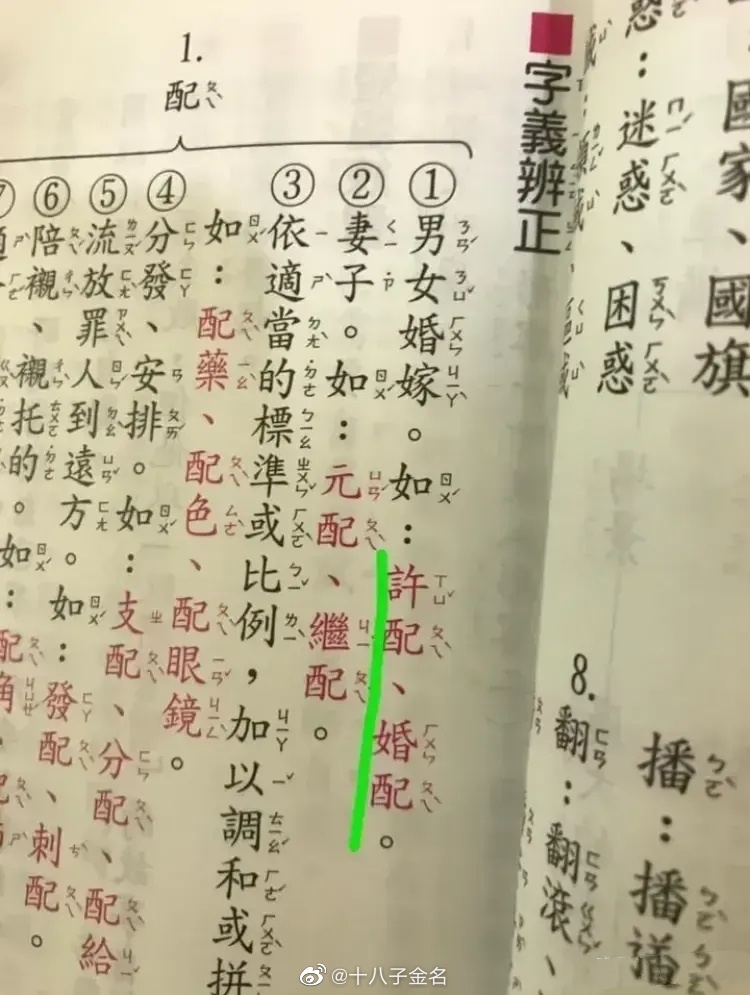 國家、國旗
惑：迷惑、困惑
播：播
8.
翻：翻滾、
字義辨正
1.
配
①男女婚嫁。如：許配、婚配。
②妻子。如：元配、繼配。
③依適當的標準或比例，加以調和或拼
如：配藥、配色、配眼鏡。
④分發、安排。如：支配、分配、配給
⑤流放罪人到遠方。如：發配、刺配。
⑥陪襯、襯托的。如：配角、
⑦
@十八子金名